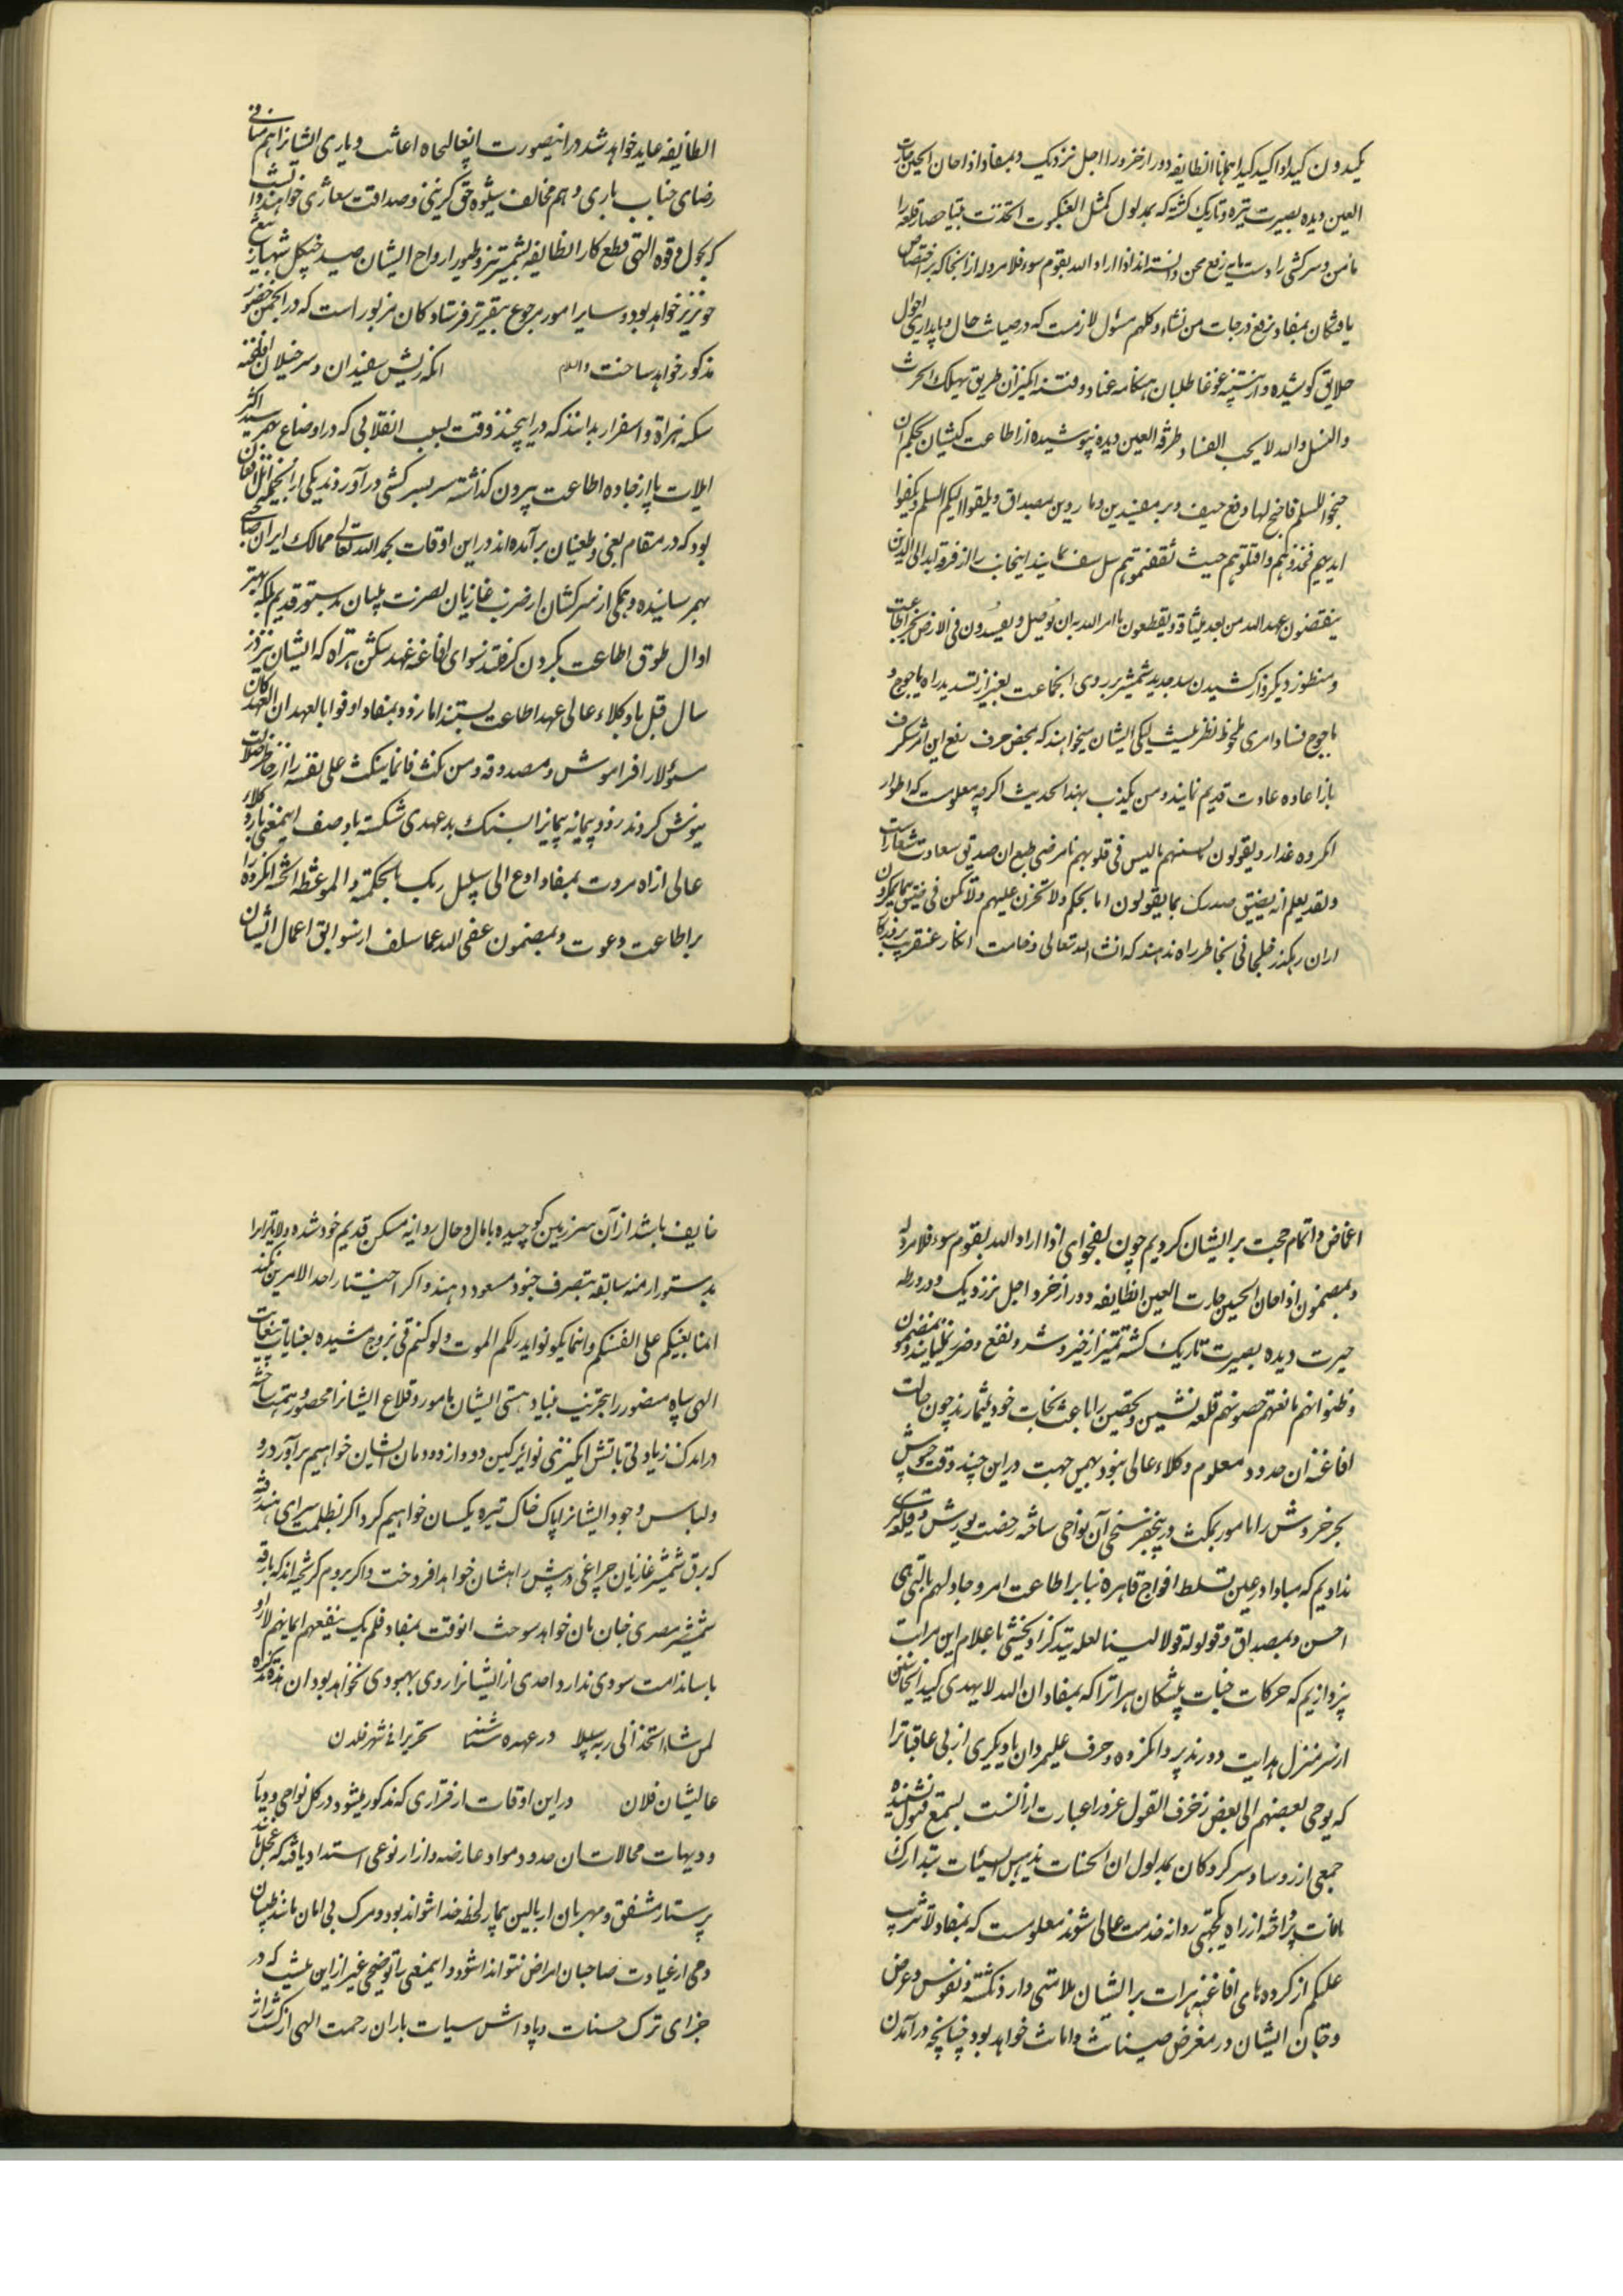 یکیدون کیدا و اکید کیدا همانا انطایفه دور از خرد را اجل نزدیک و بمفاد اذا حان الحین حارت
العین دیده بصیرت تیره و تاریک کشته که بمدلول کمثل العنکبوت اتخذت بیتا حصار قلعه را
مامن و سرکشی را دست مایه رفع محن دانسته اند اذا اراد الله بقوم سوء فلا مرد له از انجا که بر اختصاص
یافتکان بمفاد نرفع درجات من نشاء و کلهم مسئول لازمست که در صیانت حال و پایداری احوال
خلایق کوشیده و از غوغا طلبان هنکامه عناد و فتنه انکیزان طریق یهلک الحرث
والنسل والله لا یحب الفساد طرفة العین دیده نپوشیده از اطاعت کیشان بحکم ان
جنحوا للسلم فاجنح لها رفع حیف و بر مفسدین بمصداق و یلقوا الیکم السلم و یکفوا
ایدیهم فخذوهم واقتلوهم حیث ثقفتموهم سل سیف نمایند اینجانب را از فرقه الذین
ینقضون عهد الله من بعد میثاقه و یقطعون ما امر الله به ان یوصل و یفسدون فی الارض بجز اطاعت
و منظور دیکر و از کشیدن سد جدید شمشیر بروی انجماعت بغیر از تسدید راه یاجوج و
ماجوج فساد امری ملحوظ نظر نیست لیکن ایشان میخواهند که بمحض حرف رفع این امر شکرف
باز اعاده عادت قدیم نمایند و من یکذب بهذا الحدیث اکرچه معلومست که اطوار
انکروه غدار و یقولون بالسنتهم ما لیس فی قلوبهم نامرضی طبع ان صدیق سعادت شعار است
ولقد یعلم انه یضیق صدرک بما یقولون اما بحکم ولا تحزن علیهم ولا تکن فی ضیق مما یمکرون
از ان رهکذر خلجانی بخاطر راه ندهند که انشاء الله تعالی وخامت انکار عنقریب
الطایفه عاید خواهد شد در اینصورت انعالیجاه اعانت و یاری ایشانرا هم منافی
رضای جناب باری و هم مخالف شیوه حق کزینی و صداقت شعاری خواهند دانست
که بحول و قوه الهی قطع کار الطایفه بشمشیر تیز و طیور ارواح ایشان صید چنکل شهباز تیغ
خونریز خواهد بود و سایر امور مرجوع بتقریر فرستادکان مزبور است که در انجمن حضور
مذکور خواهد ساخت والسلام انکه ریش سفیدان و سرخیلان افاغنه
سکنه هراة و اسفزار بدانند که در اینچند وقت بسبب انقلابی که در اوضاع بهم رسید اکثر
ایلات پا از جاده اطاعت بیرون کذاشته سر بسرکشی در آوردند یکی از انجمله ایل افغان
بود که در مقام بغی و طغیان بر آمده اند در این اوقات بحمد الله تعالی ممالک ایران صاحبی
بهم رسانیده و همکی از سرکشان از ضرب غازیان نصرت بنیان بدستور قدیم بلکه بهتر
اوال طوق اطاعت بکردن کرفتند سوای افاغنه عهد شکن هراة که ایشان نیز از
سال قبل با وکلاء عالی عهد اطاعت بستند اما زود بمفاد اوفوا بالعهد ان العهد کان
مسئولا را فراموش و مصدوقه و من نکث فانما ینکث علی نفسه را از خاطر ضلالت
نیوش کردند و پیمانه پیمانرا بسنک بدعهدی شکسته با وصف اینمعنی باز وکلاء
عالی از راه مروت بمفاد ادع الی سبیل ربک بالحکمة والموعظة الحسنة انکروه را
بر اطاعت دعوت و بمضمون عفی الله عما سلف از سوابق اعمال ایشان
اغماض و اتمام حجت بر ایشان کردیم چون بفحوای اذا اراد الله بقوم سوء فلا مرد له
و بمضمون اذا حان الحین حارت العین انطایفه دور از خرد اجل نزدیک و در ورطه
حیرت دیده بصیرت تاریک کشته تمیز از خیر و شر و نفع و ضرر نمینمایند و بمضمون
وظنوا انهم مانعتهم حصونهم قلعه نشینی و تحصن را باعث نجات خود میشمارند چون حالت
افاغنه ان حدود معلوم وکلاء عالی نبود بهمین جهت در این چند وقت جیوش
بحر خروش را مامور بمکث و تسخیر آن نواحی ساخته رخصت یورش و قلعه کیری
ندادیم که مبادا در عین تسلط افواج قاهره بنا بر اطاعت امر و جادلهم بالتی هی
احسن و بمصداق و قولا له قولا لینا لعله یتذکر او یخشی باعلام این مراتب
پردازیم که حرکات خباثت پیشکان هراترا که بمفاد ان الله لا یهدی کید الخائنین
از سر منزل هدایت دورند پرده انکروه و حرف علیمردان یا دیکری از بی عاقبتانرا
که یوحی بعضهم الی بعض زخرف القول غرورا عبارت از انست بسمع قبول نشنیده
جمعی از روسا و سرکردکان بمدلول ان الحسنات یذهبن السیئات بتدارک
مافات پرداخته از راه یکجهتی روانه خدمت عالی شوند معلومست که بمفاد لا تثریب
علیکم از کرده های افاغنه هرات بر ایشان ملامتی وارد نکشته و نفوس و عرض
و جان ایشان در معرض صیانت و امان خواهد بود چنانچه در آمدن
خایف باشد از آن سرزمین کوچیده با مال و حال روانه مسکن قدیم خود شده و ولایترا
بدستور ازمنه سابقه بتصرف جنود مسعود دهند و اکر اختیار احد الامرین نکنند
انما بغیکم علی انفسکم و اینما تکونوا یدرککم الموت ولو کنتم فی بروج مشیده بعنایات بیغایات
الهی سپاه منصور را بتخریب بنیاد هستی ایشان مامور و قلاع ایشانرا محصور و بهمت ساخته
در اندک زمانی بآتش انکیزی نوایر کین دود از دودمان ایشان خواهیم برآورد و
ولباس وجود ایشانرا پاک خاک تیره یکسان خواهیم کرد اکر بظلمت سرای هند رفته
که برق شمشیر غازیان چراغی در پیش راهشان خواهد افروخت و اکر بروم کریخته اند که بارقه
شمشیر مصری خان مان خواهد سوخت انوقت بمفاد فلم یک ینفعهم ایمانهم لما راوا
باسنا ندامت سودی ندارد و احدی از ایشانرا روی بهبودی نخواهد بود ان هذه تذکره
لمن شاء اتخذ الی ربه سبیلا در عهده شناسند تحریرا فی شهر فلان
عالیشان فلان در این اوقات از قراری که مذکور میشود در کل نواحی و
و دیهات محالات ان حدود مواد عارضه و ازار نوعی اشتداد یافته که
پرستار مشفق و مهربان از بالین بیمار لحظه جدا نتواند بود و مرک بی امان مانند طبیبان
دمی از عیادت صاحبان امراض نتواند اسود و اینمعنی را توضیحی غیر از این نیست که در
جزای ترک حسنات و پاداش سیات باران رحمت الهی از